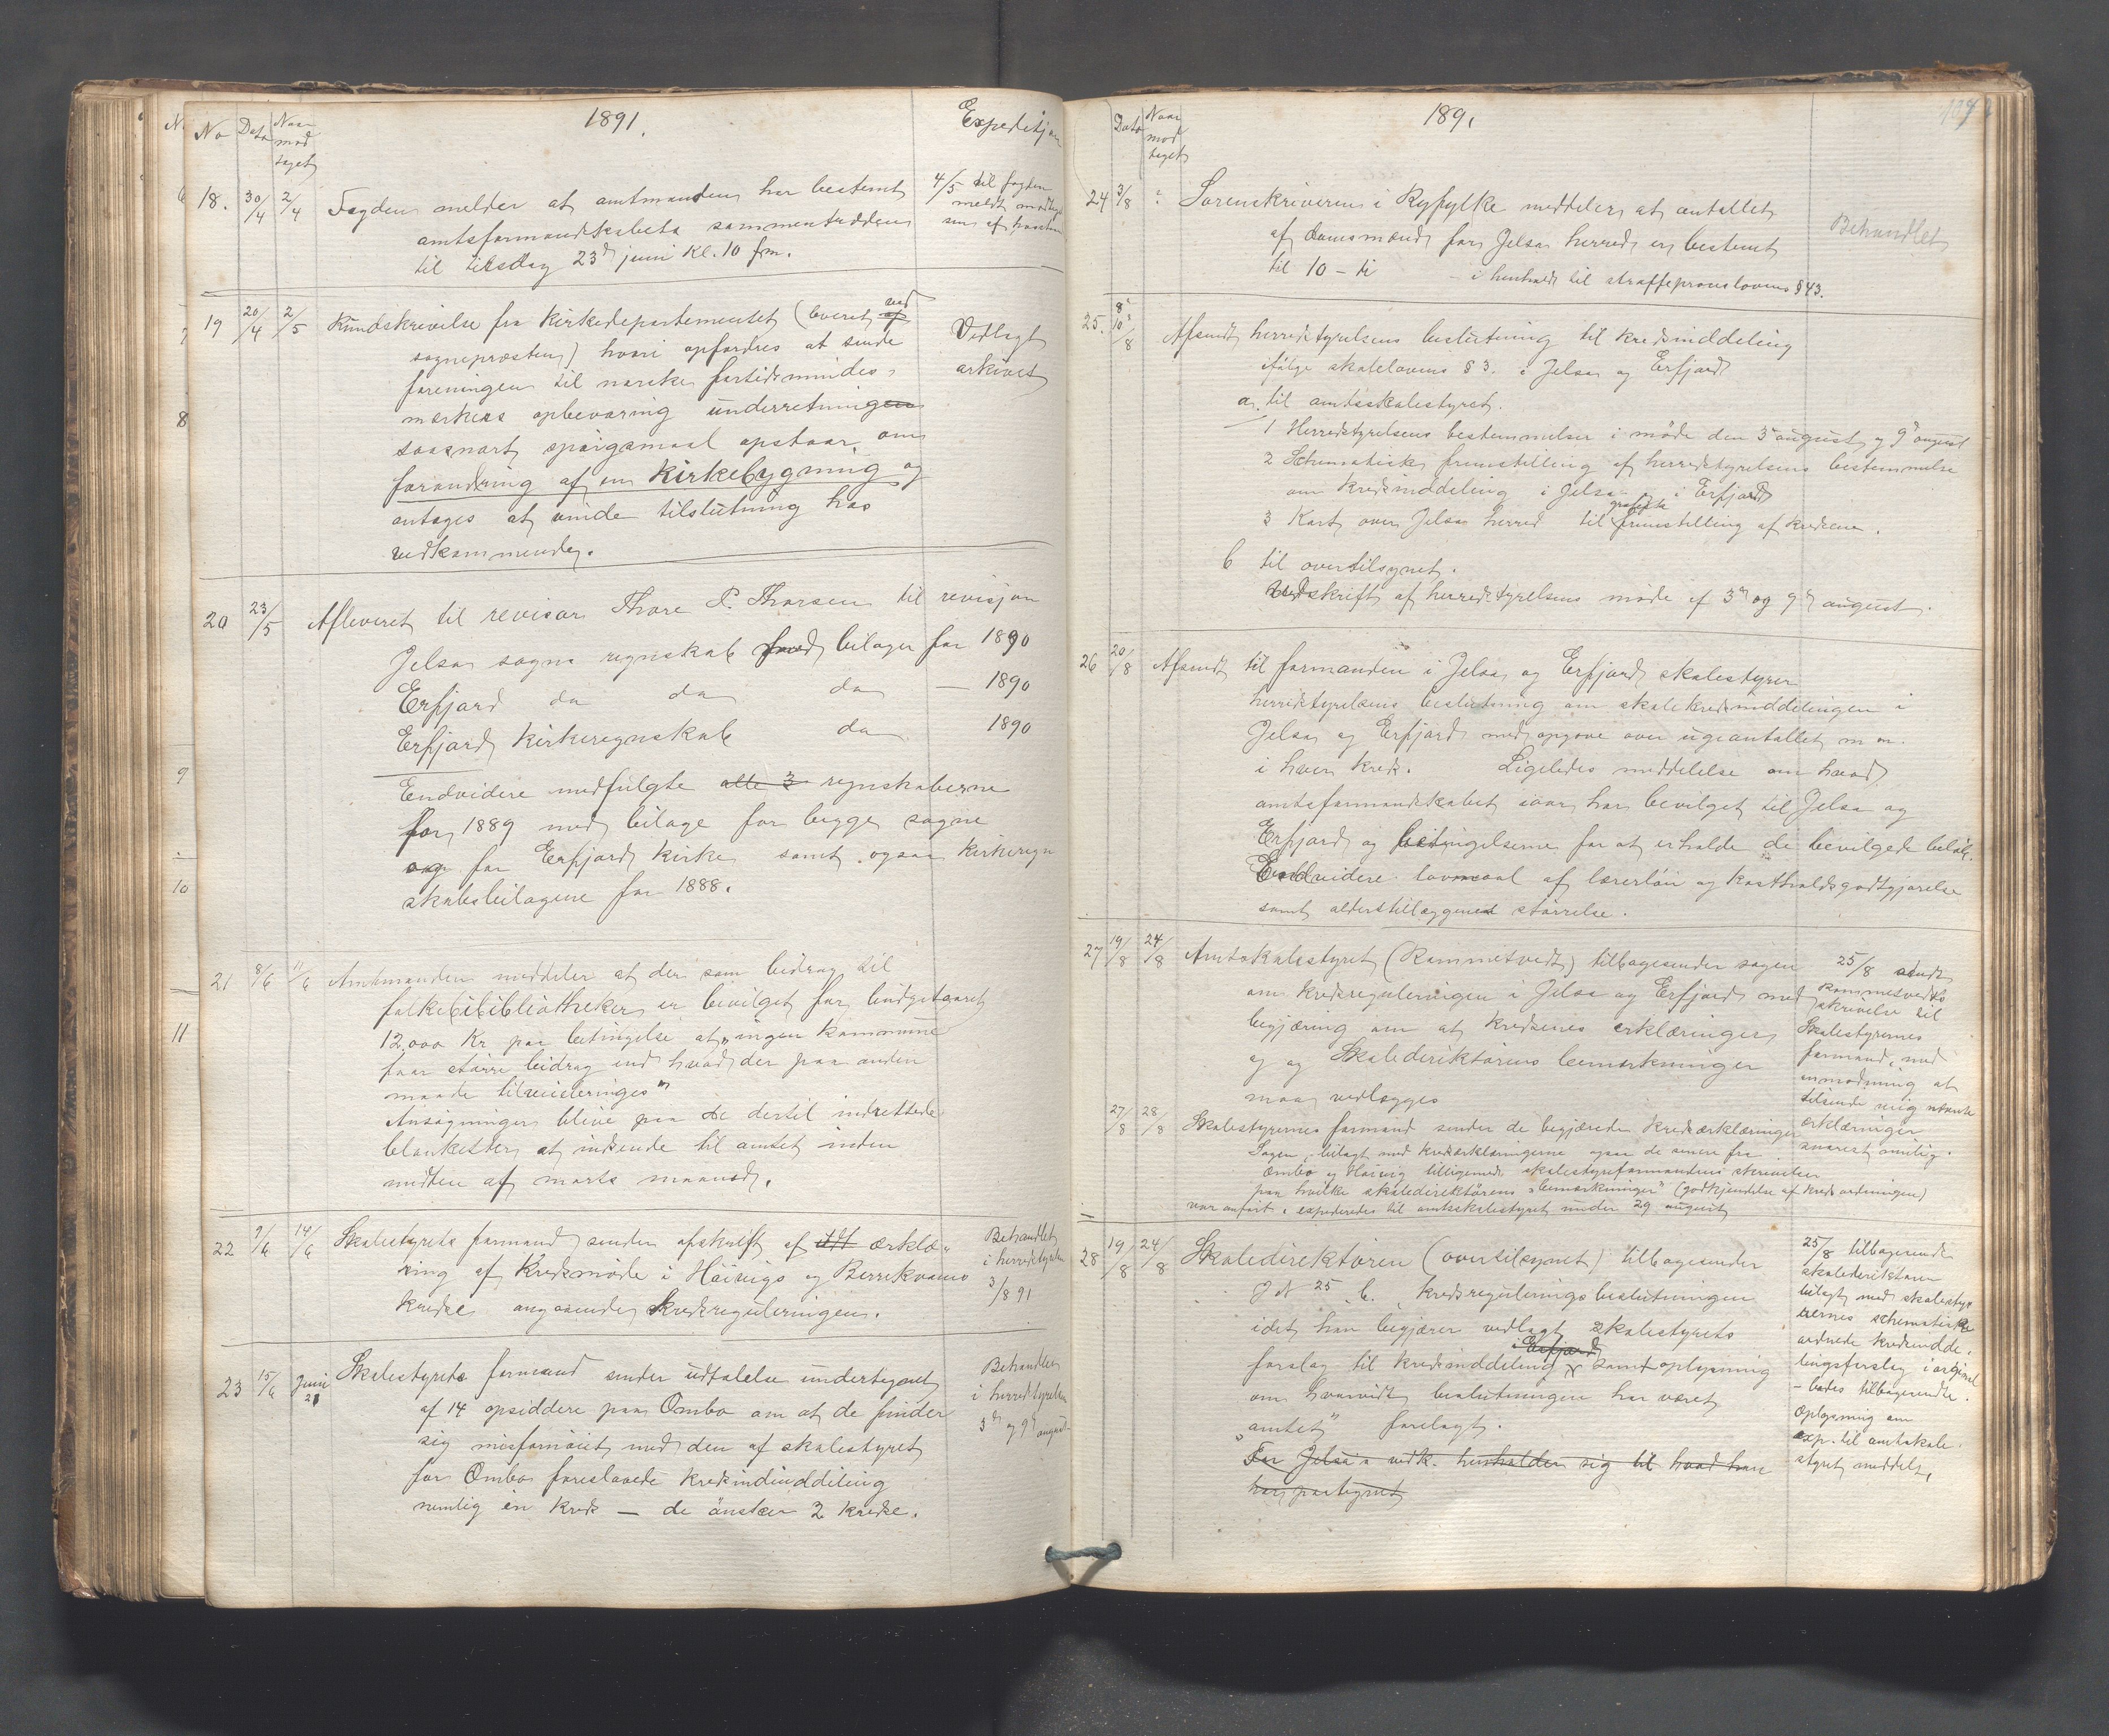 No Dato Naar mod taget 1891. Expeditjon
18. 30/4 2/4 Fogden melder at amtmanden har bestemt
amtsformandskabets sammentræden
til tirsdag 23de juni kl. 10 fm.
4/5 til fogden
meldt
19 20/4 2/5 Rundskrivelse fra Kirkedepartementet (leveret af ved
sognepræsten) hvori opfordres at sende
foreningen til norske fortidsmindes-
mærkers opbevaring underretningen
saasnart spörgsmaal opstaar om
forandring af en Kirkebygning og
antages at vinde tilslutning hos
vedkommende.
Vedlagt
arkivet
20 23/5 Afleveret til revisor Thore P. Thorsen til revisjon
Jelsa sogns regnskab med bilager for 1890
Erfjord do do do — 1890
Erfjord Kirkeregnskab do 1890
Endvidere medfulgte alle 3 regnskaberne
for 1889 med bilage for begge sogne
og for Erfjord Kirke samt ogsaa Kirkeregn
skabsbilagene for 1888.
21 8/6 11/6 Amtmanden meddeler at der som bidrag til
folkebibliotheker er bevilget for budgetaaret
12,000 Kr paa betingelse at "ingen kommune
faar større bidrag end hvad der paa anden
maade tilveiebringes"
Ansøgninger blive paa de dertil indrettede
blanketter at indsende til amtet inden
midten af marts maaned.
22 9/6 14/6 Skolestyrets formand sender afskrift af erklæ-
ring af Kredsmøde i Høivigs og Berrekvams
kredse angaaende kredsreguleringen.
Behandlet
i herredstyret
3/8 91
23 15/6 Juni 21 Skolestyrets formand sender udtalelse undertegnet
af 14 opsiddere paa Ombo om at de finder
sig misfornöiet med den af skolestyret
for Ombo foreslaaede kredsinddeling
nemlig én kreds — de önsker 2 kredse.
Behandlet
i herredstyrelsen
3de og 9de august
Dato Naar mod taget 1891
24 3/8 Sorenskriveren i Ryfylke meddeler at antallet
af domsmænd for Jelsa herred er bestemt
til 10 – ti i henhold til straffeproceslovens § 43.
Behandlet
25. 8/8 10/8 Afsendt herredstyrelsens beslutning til kredsinddeling
ifölge skolelovens § 3. i Jelsa og Erfjord
a. til amtsskolestyret.
1 Herredstyrelsens bestemmelser i møde den 3de august og 9de august
2 Schematisk fremstilling af herredstyrelsens bestemmelse
om kredsinddeling i Jelsa i Erfjord
3 Kart over Jelsa herred til grafisk fremstilling af kredsene.
b til overtilsynet.
Udskrift af herredstyrelsens møde af 3de og 9de august.
26 20/8 Afsendt til formanden i Jelsa og Erfjord skolestyrer
herredstyrelsens beslutning om skolekredsinddelingen i
Jelsa og Erfjord med opgave over ugeantallet m m.
i hver kreds. Ligeledes meddelelse om hvad
amtsformandskabet iaar har bevilget til Jelsa og
Erfjord og betingelserne for at erholde de bevilgede beløb.
Endvidere lovmaal af lærerlön og Kostholdsgodtgjørelse
samt alderstillæggenes størrelse.
27 19/8 24/8 Amtsskolestyret (Rommetvedt) tilbagesender sagen
om kredsreguleringen i Jelsa og Erfjord med
begjæring om at kredsenes erklæringer
og og Skoledirektørens bemærkninger
maa vedlægges
25/8 sendt
Rommetvedts
skrivelse til
Skolestyrernes
formand, med
anmodning at
tilsende mig
erklæringer
snarest mulig.
27/8 28/8 Skolestyrernes formand sender de begjærede kredserklæringer
Sagen, bilagt med kredserklæringerne ogsaa de senere fra
Ombo og Høivig tilligemed skolestyreformandens skrivelser
paa hvilke skoledirektørens "bemærkninger" (godkjendelse af kredsordningen)
var anført, expederedes til amtsskolestyret under 29 august
28 19/8 24/8 Skoledirektören (overtilsynet) tilbagesender
J N 25 b. kredsreguleringsbeslutningen
idet han begjærer vedlagt skolestyrets
forslag til kredsinddeling i Erfjord samt oplysning
om hvorvidt beslutningen har været
"amtet" forelagt.
For Jelsa's vedk. henholder sig til hvad han
har paategnet
25/8 tilbagesendt
skoledirektøren
bilagt med skolesty-
rernes schematiske
ordnede kredsindde-
lingsforslag i original
– bedes tilbagesendt.
Oplysning om
exp. til amtsskole-
styret meddelt.
6
8
9
10
11